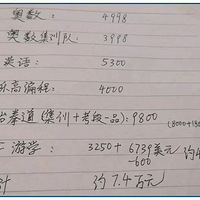 奥数: 4998
奥数集训队: 3998
英语: 5300
乐高编程: 4000
跆拳道(集训+考段一品): 9800
(8000+180
游学: 3250+6739美元 约4
-600
计 约7.4万元